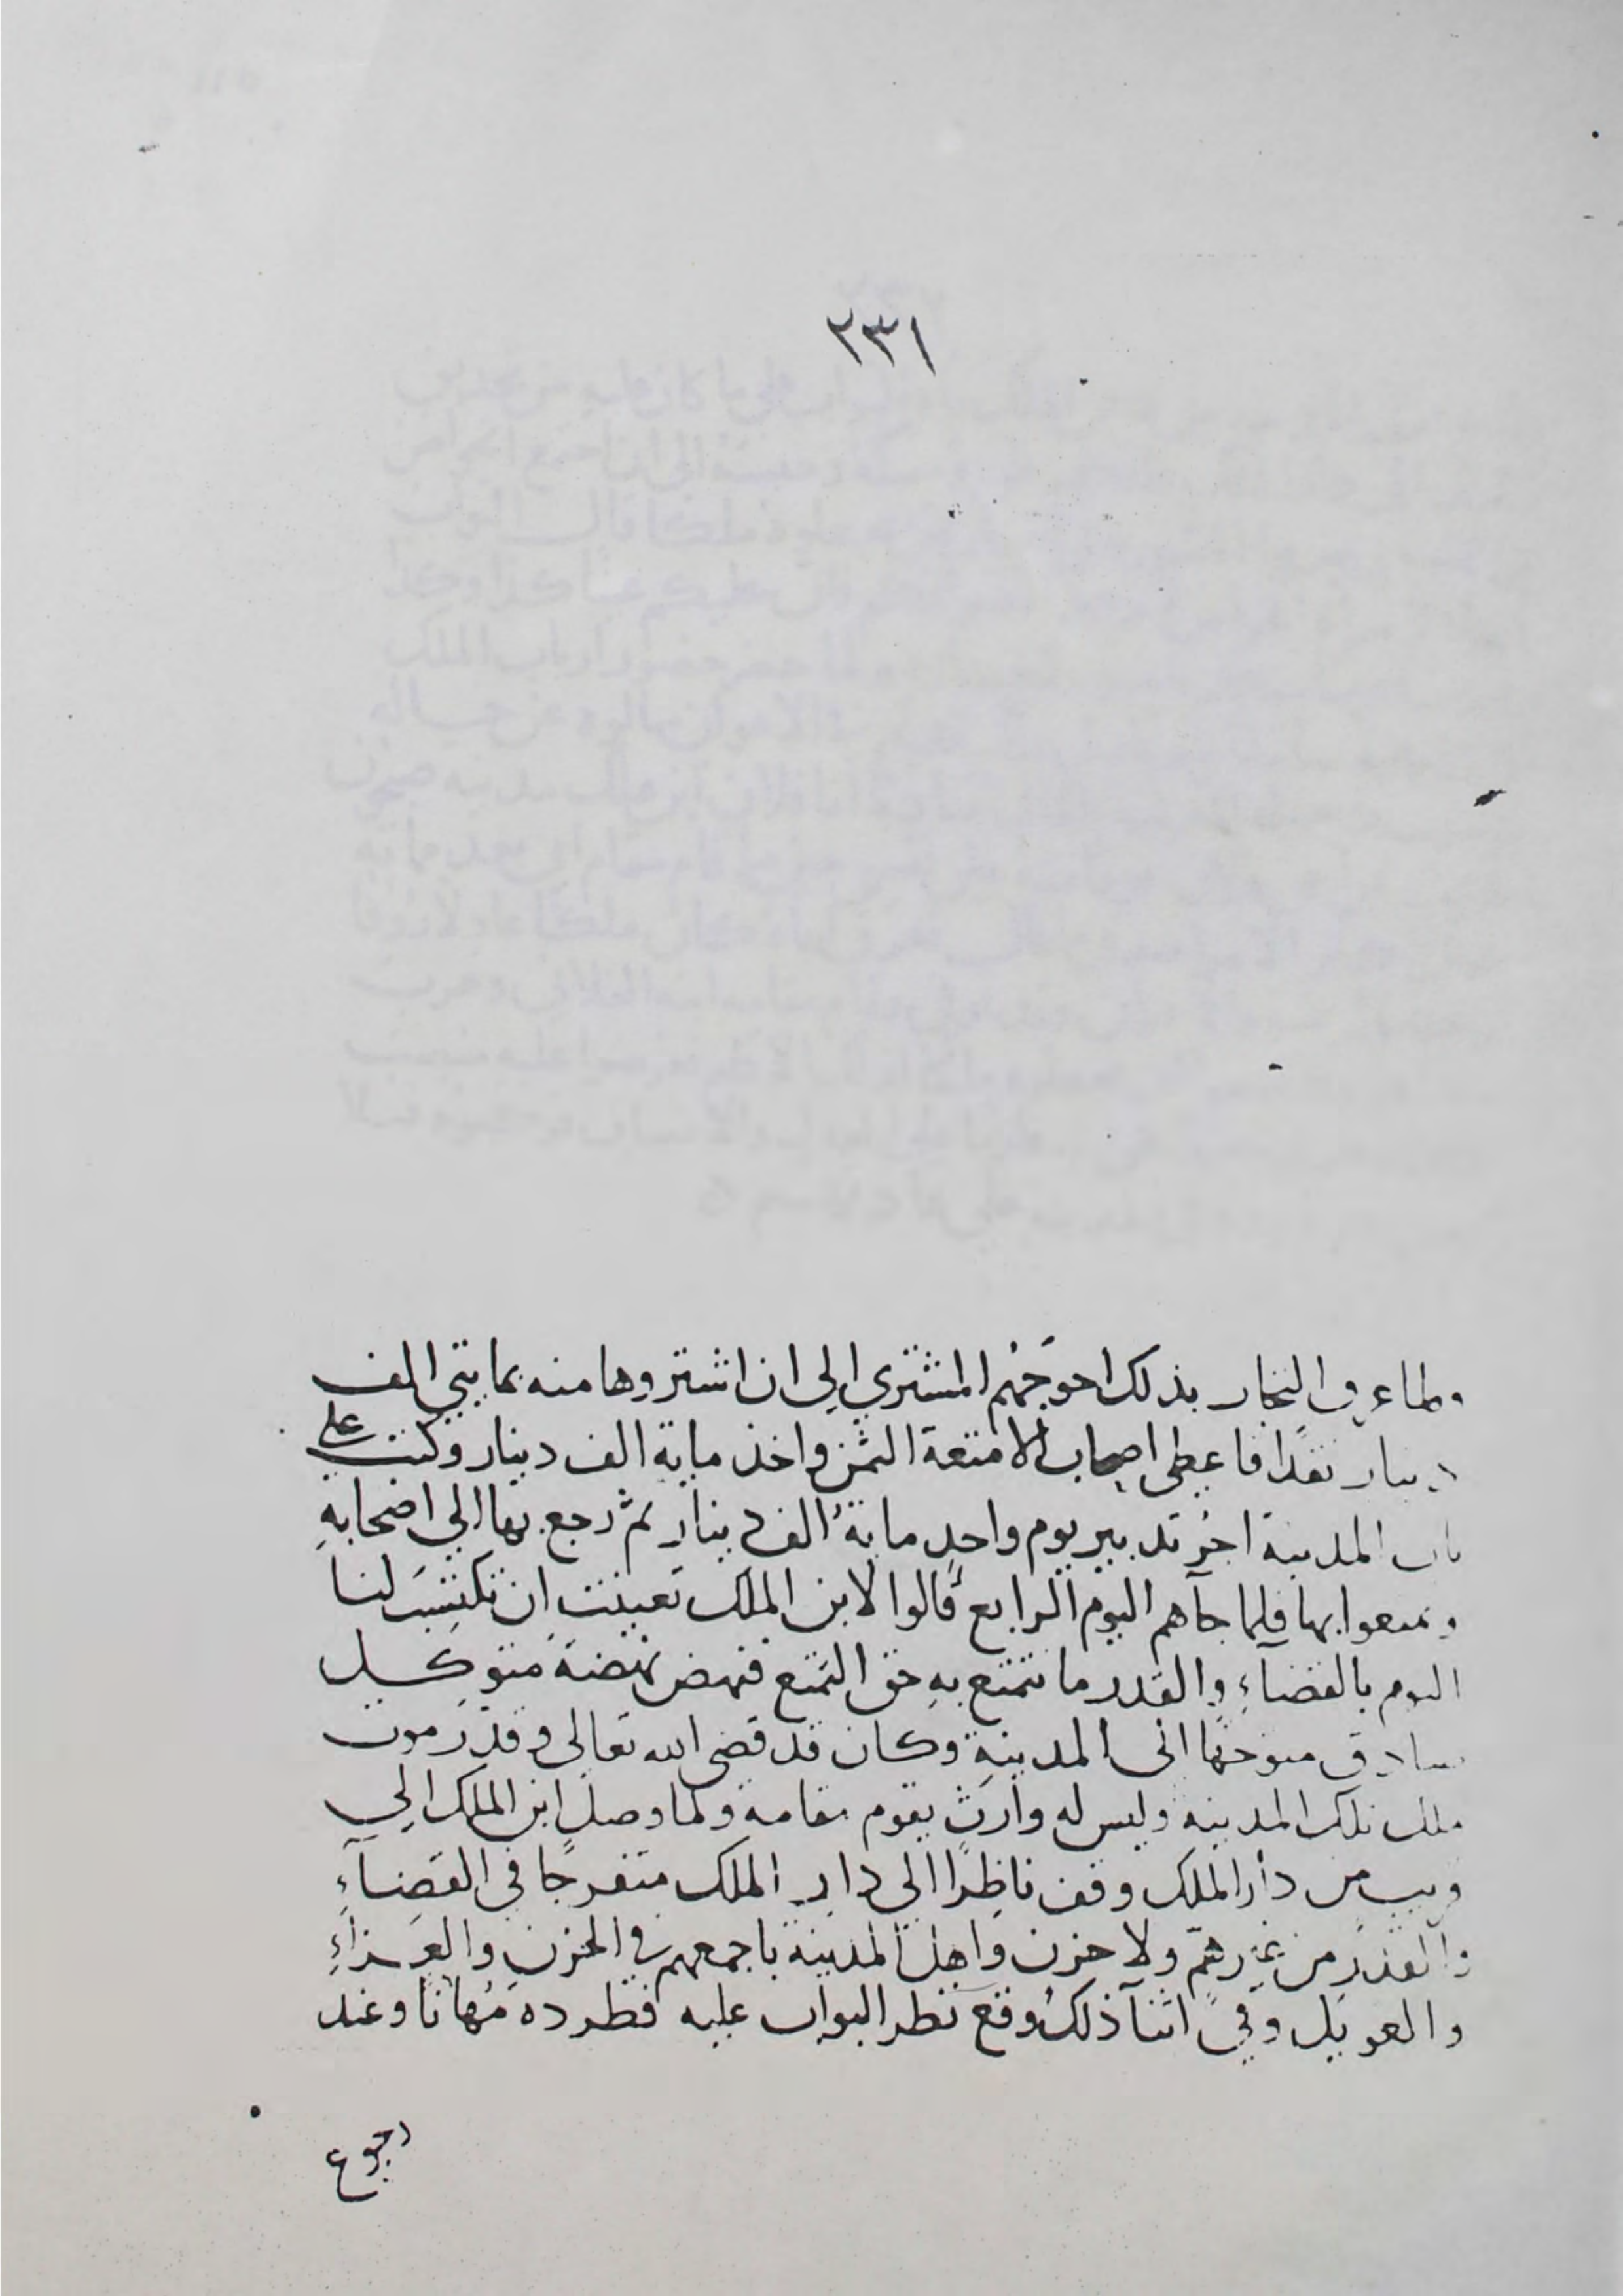 ٢٣١
ولما عرف التجار بذلك احوجهم المشتري الي ان اشتروها منه بمايتي الف
دينار نقدًا فاعطى اصحاب الامتعة الثمن واخذ ماية الف دينار وكتب علي
باب المدينة اجر تدبير يوم واحدٍ مايةُ الف دينارٍ ثم رجع بها الي اصحابهِ
وتمتعوا بها فلما جآهم اليوم الرابع قالوا لابن الملك تعينت ان تكتسب لنا
اليوم بالقضاءِ والقدر ما نتمتع بهِ حق التمتع فنهض نهضةَ متوكل
صادق متوجهًا الى المدينةِ وكان قد قضى الله تعالى وقدر موت
ملك تلك المدينه وليس له وارث يقوم مقامه ولما وصل ابن الملك الي
قريب من دار الملك وقف ناظرًا الى دار الملك متفرجًا في القضآءِ
والقدر من غير همّ ولا حزن واهل المدينة باجمعهم في الحزن والعزاءِ
والعويل وفي اثنآ ذلك وقع نظر البواب عليه فطرده مُهانًا وعند
رجوع